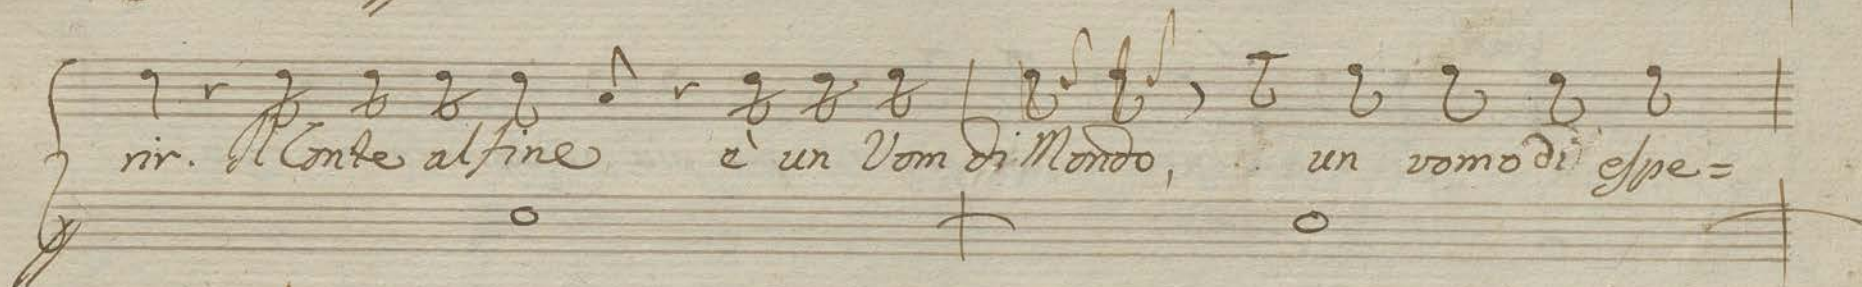 rir. Il Conte alfine è un Vom di Mondo, un vomo di espe=